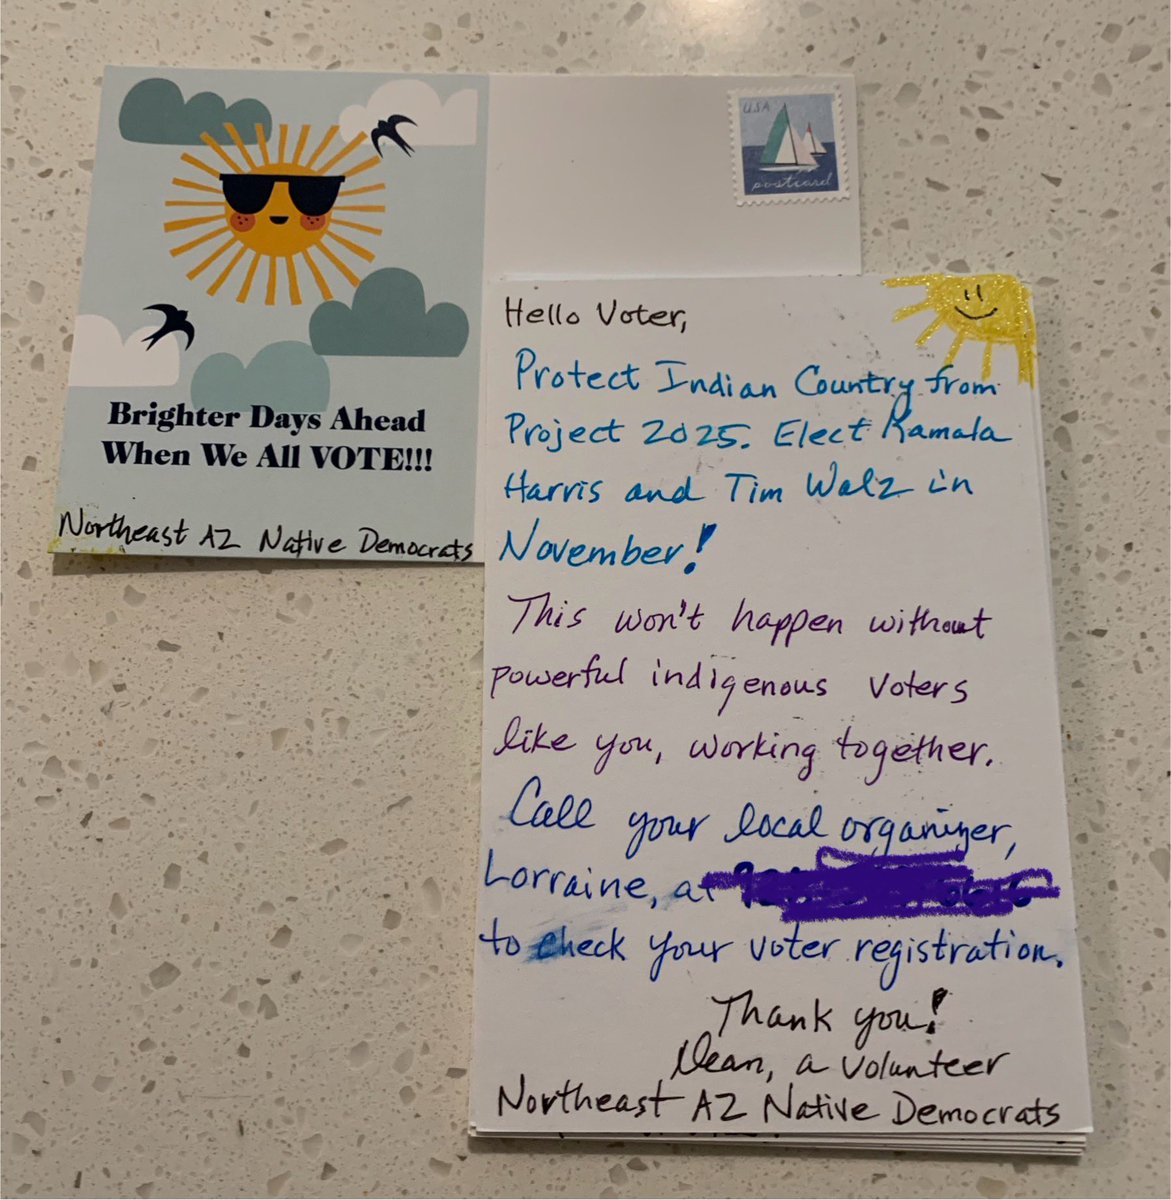 USA
postcard
Brighter Days Ahead
When We All VOTE!!!
Northeast AZ Native Democrats
Hello Voter,
Protect Indian Country from
Project 2025. Elect Kamala
Harris and Tim Walz in
November!
This won't happen without
powerful indigenous voters
like you, working together.
Call your local organizer,
Lorraine, at
to check your voter registration.
Thank you!
Dean, a volunteer
Northeast AZ Native Democrats